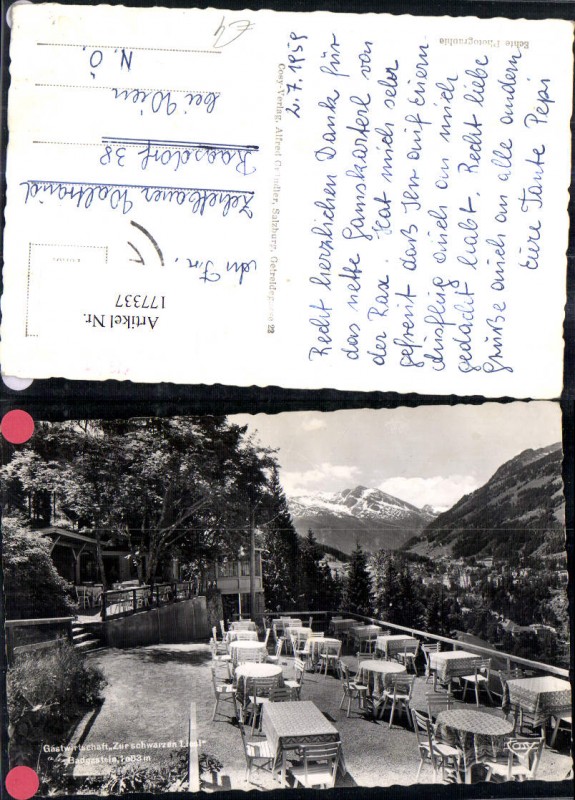 Echte Photographie
2.7.1959
Recht herzlichen Dank für
das nette Gamskarterl von
der Rax. Hat mich sehr
gefreut daß Ihr auf Euern
Ausflug auch an mich
gedacht habt. Recht liebe
Grüße auch an alle andern
Eure Tante Pepi
Cosy-Verlag, Alfred Gründler, Salzburg, Getreidegasse 22
An Frn.
Waltraud
Raasdorf 38
bei Wien
N.Ö.
Artikel Nr.
177337
Gastwirtschaft „Zur schwarzen Liesl"
Badgastein, 1083 m
COSY